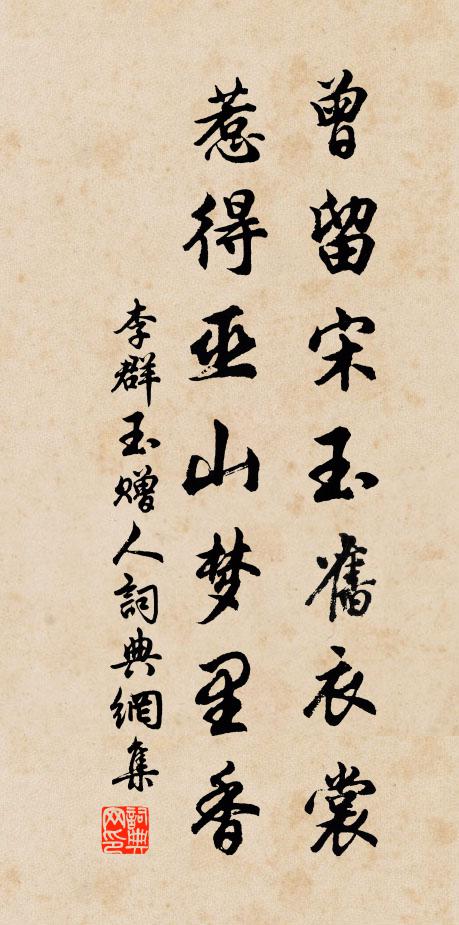 曾留宋玉舊衣裳
惹得巫山梦里香
李群玉赠人詞典網集
詞典网印